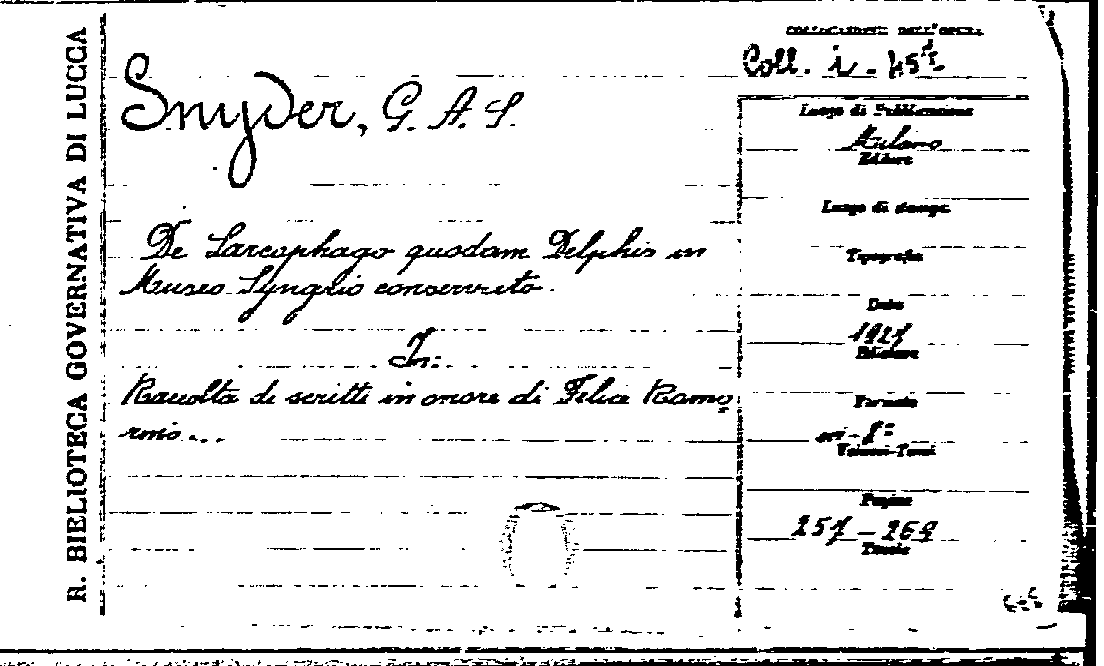 R. BIBLIOTECA GOVERNATIVA DI LUCCA
Snyder, G. A. S.
De Sarcophago quodam Delphis in
Museo Synglio conservato.
In:
Raccolta di scritti in onore di Felice Ramo
rino...
COLLOCAZIONE DELL'OPERA
Coll. i. 45
Luogo di Pubblicazione
Milano
Editore
Luogo di stampa
Tipografia
Data
1927
Edizione
Formato
in-8°
Volumi-Tomi
Pagine
257-269
Tavole